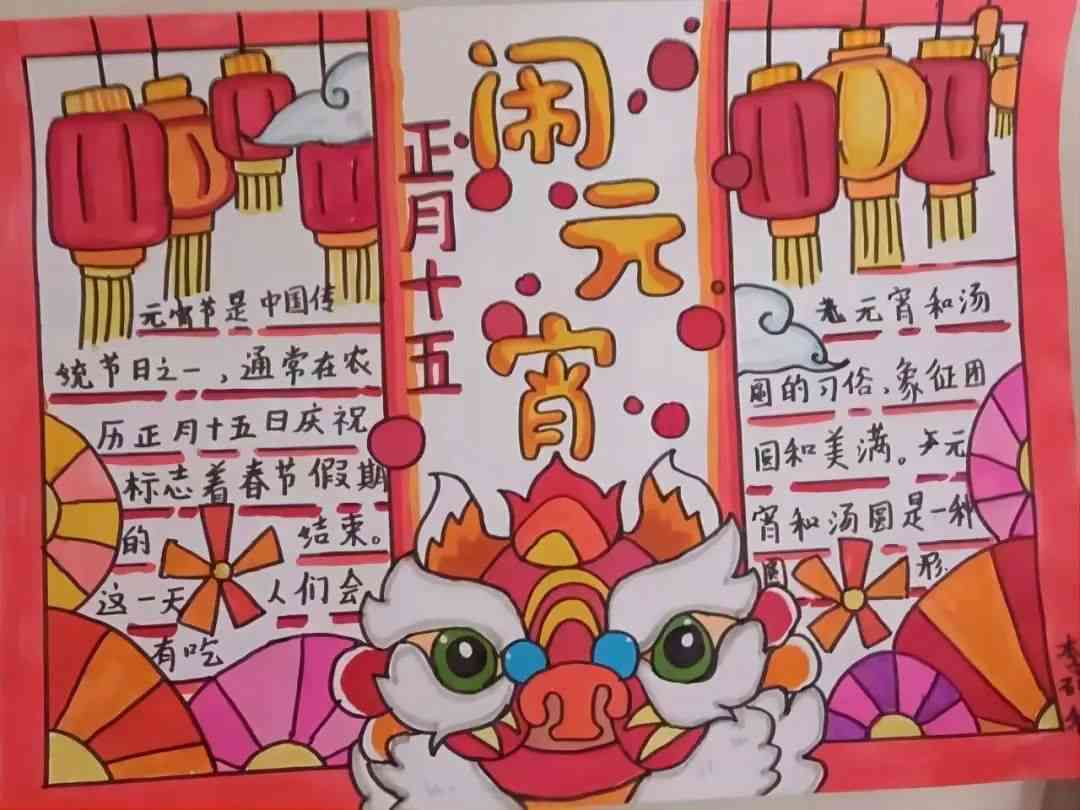 闹元宵
正月十五
元宵节是中国传
统节日之一，通常在农
历正月十五日庆祝
标志着春节假期
的 结束。
这一天 人们会
有吃
元宵和汤
圆的习俗，象征团
圆和美满。元
宵和汤圆是一种
圆 形